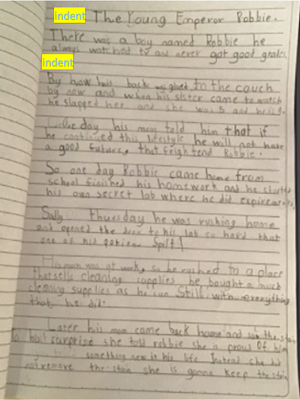 indent The Young Emperor Robbie.
There was a boy named Robbie he
always watched tv and never got good grades
indent
By now his back was glued to the couch
by now and when his sister came to watch
he slapped her and she was 5 and
day his mom told him that if
he continued this lifestyle he will not have
a good future, that frightend Robbie.
So one day Robbie came home from
school finished his homework and he started
his own secret lab where he did
thursday he was rushing home
and opened the door to his lab so hard that
one of his potions Spilt!
His mom was at work, so he rushed to a place
that sells cleaning supplies he bought a much
cleaning supplies as he can Still with everything
that he did
Later his mom came back home and saw the stain
to his surprise she told robbie she is proud of him
something new in his life. Instead she did
not remove the stain she is gonna keep the stain